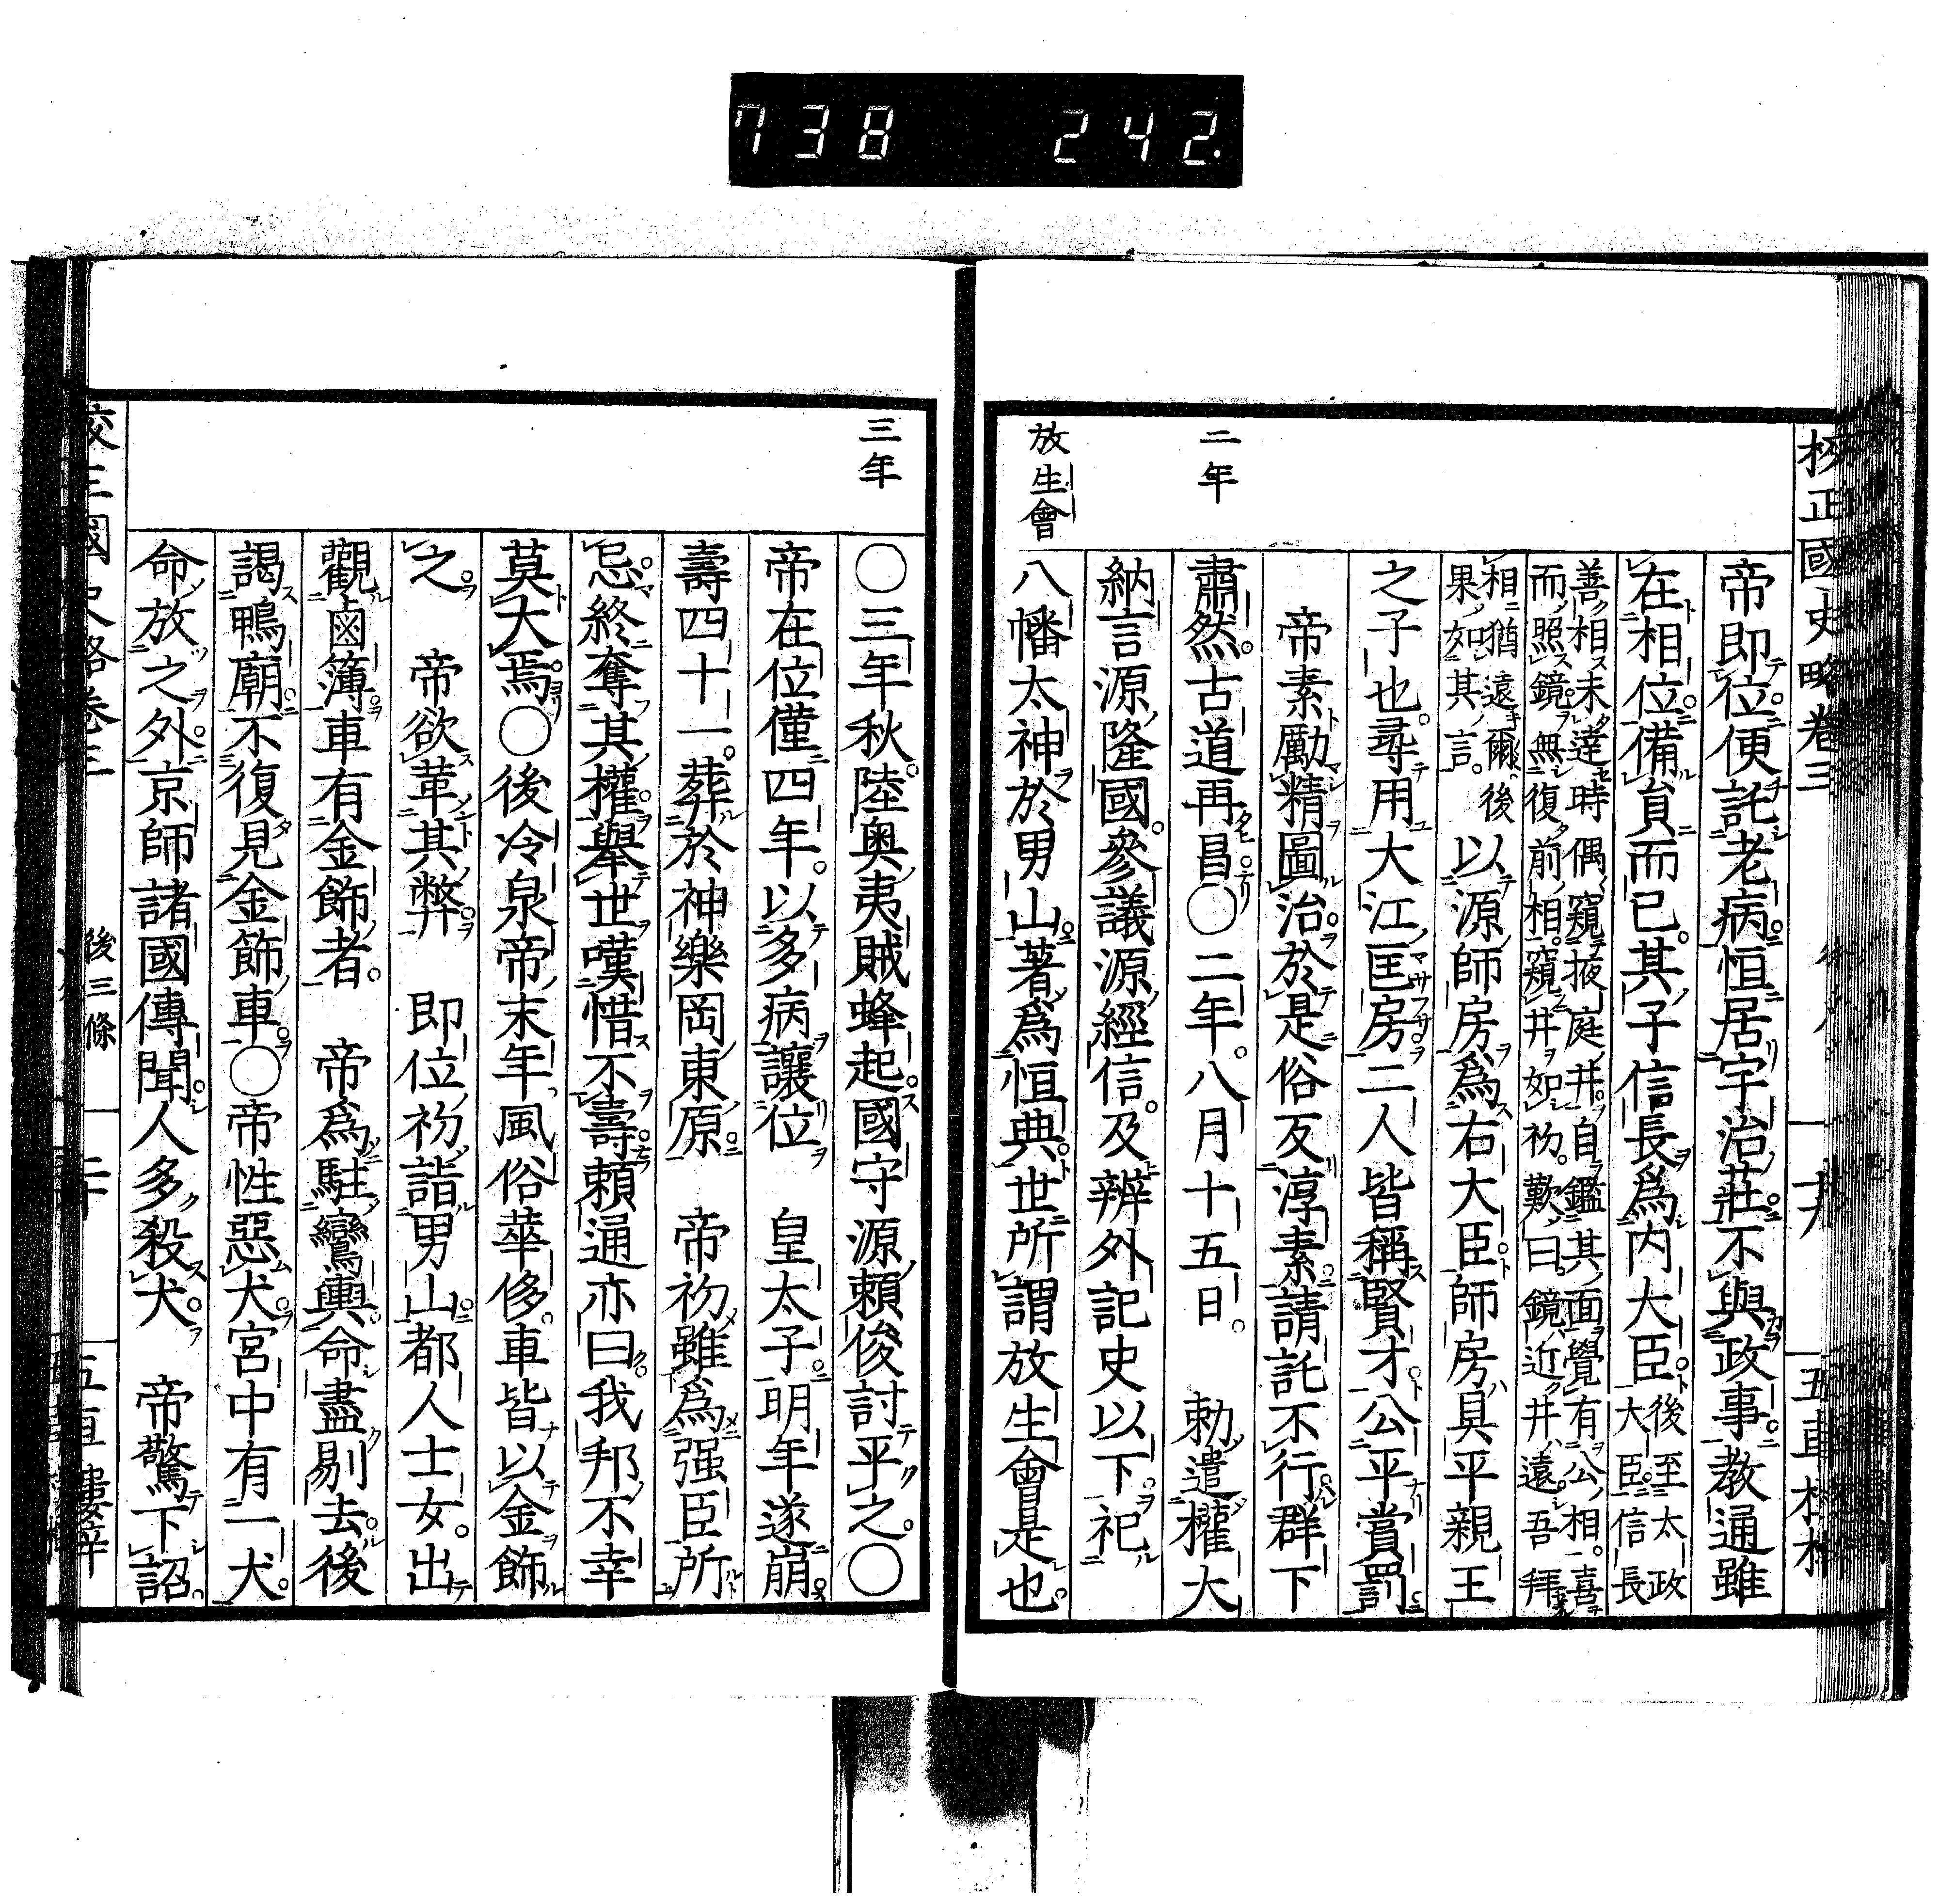 738 242.
校正國史略卷三
帝即位便託老病恒居宇治莊不與政事教通雖
在相位備員而已其子信長爲内大臣後至太政大臣信長
善相未達時偶窺掖庭井自鑑其面覺有公相喜
而照鏡無復前相窺井如初歎曰鏡近井遠吾拜
相猶遠爾後
果如其言
以源師房爲右大臣師房具平親王
之子也尋用大江匡房二人皆稱賢才公平賞罰
帝素勵精圖治於是俗反淳素請託不行群下
二年
肅然古道再昌〇二年八月十五日 勅遣權大
納言源隆國參議源經信及辨外記史以下祀
放生會
八幡大神於男山著爲恒典世所謂放生會是也
三年
〇三年秋陸奥夷賊蜂起國守源賴俊討平之〇
帝在位僅四年以多病讓位 皇太子明年遂崩
壽四十一葬於神樂岡東原 帝初雖爲强臣所
忌終奪其權擧世嘆惜不壽賴通亦曰我邦不幸
莫大焉〇後冷泉帝末年風俗華侈車皆以金飾
之 帝欲革其弊 即位初詣男山都人士女出
觀鹵簿車有金飾者 帝爲駐鸞輿命盡剔去後
謁鴨廟不復見金飾車〇帝性惡犬宮中有一犬
命放之外京師諸國傳聞人多殺犬 帝驚下詔
後三條